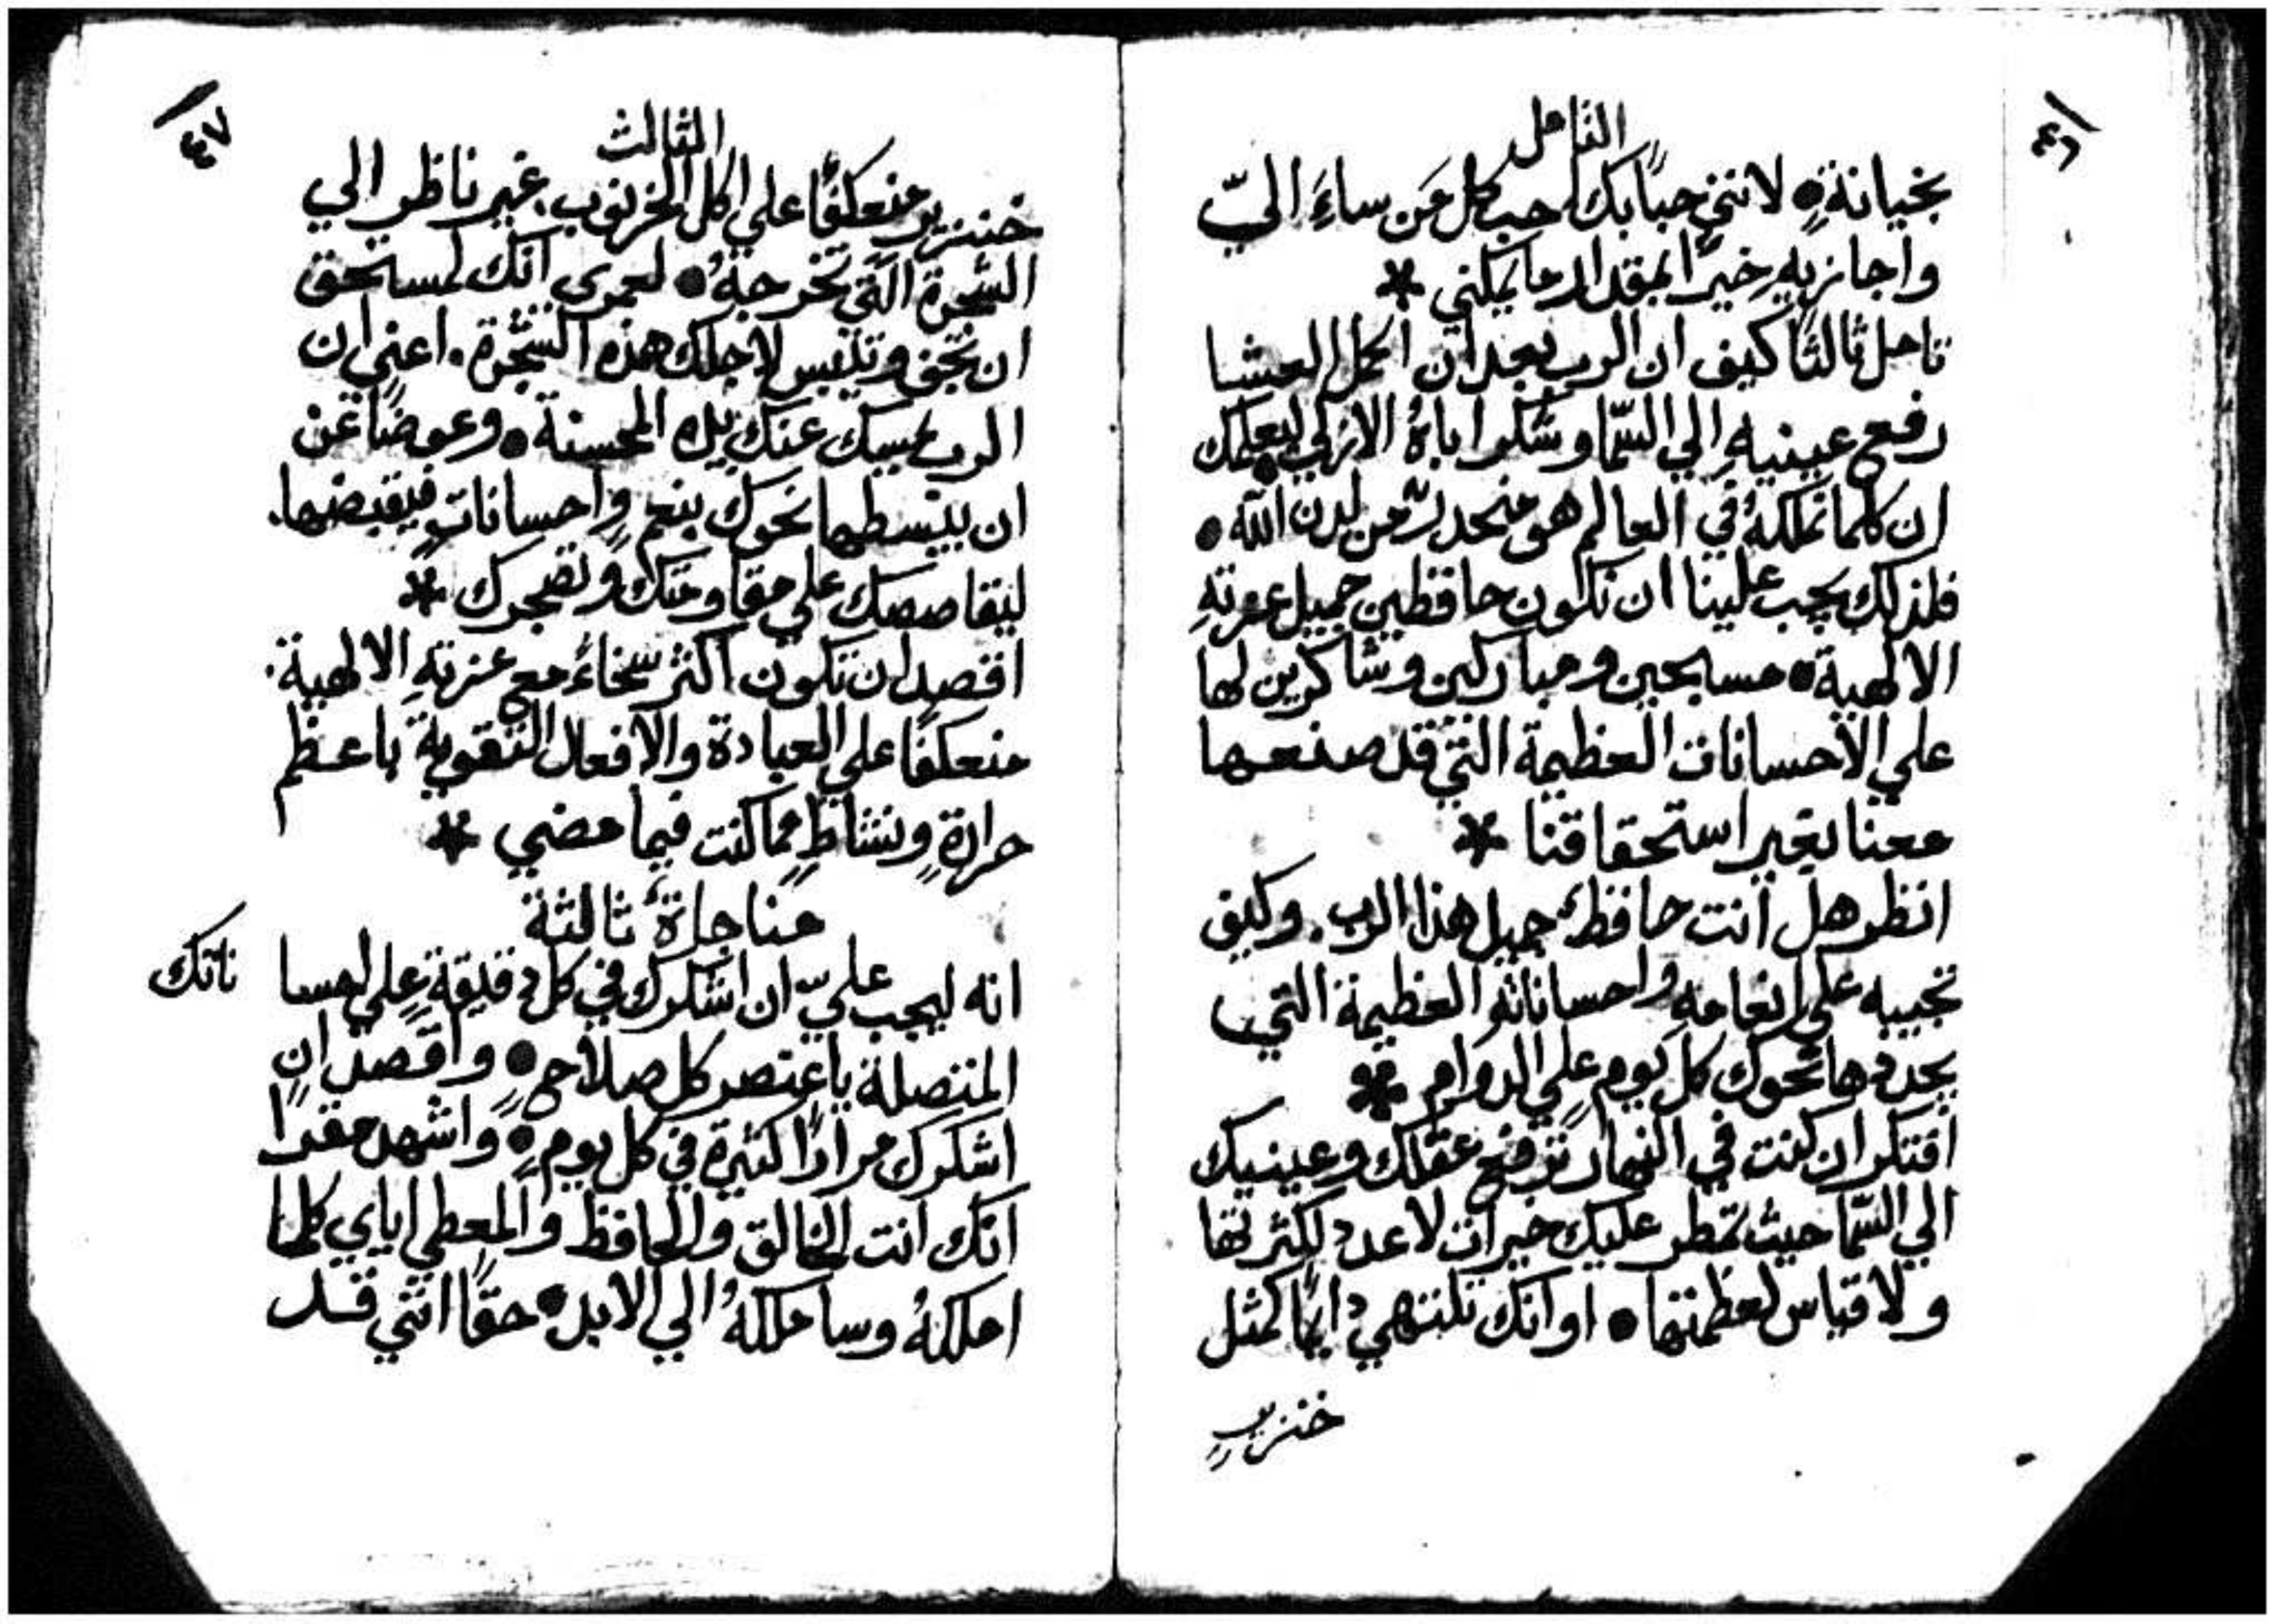 ٤٦
التامل
بخيانةٍ • لانني حبًا بك احب كل مَن ساءَ اليّ
واجازيهِ خيرًا بمقدار ما يمكنني *
تامل ثالثًا كيف ان الرب بعد ان اكمل العشا
رفع عينيهِ الي السّما وشكر اباهُ الازلي ليعلمك
ان كلما تملكهُ في العالم هو منحدرٌ من لدن اللّه •
فلذلك يجب علينا ان نكون حافظين جميل عزتهِ
الالهية • مسبحين ومباركين وشاكرين لها
علي الاحسانات العظيمة التي قد صنعها
معنا بغير استحقاقنا *
انظر هل انت حافظٌ جميل هذا الرب. وكيف
تجيبه علي انعامهِ واحساناتهِ العظيمة التي
يجددها نحوك كل يومٍ علي الدوام *
افتكر ان كنت في النهار ترفع عقلك وعينيك
الي السّما حيث تمطر عليك خيرات لا عدد لكثرتها
ولا قياس لعظمتها • او انك تلتهي دايمًا كمثل
خنزيرٍ
٤٧
الثالث
خنزيرٍ منعكفًا علي اكل الخرنوب. غير ناظر الي
الشجرة التي تخرجهُ • لعمري انك لمستحق
ان تجف وتيبس لاجلك هذه الشجرة. اعني ان
الرب يمسك عنك يده المحسنة • وعوضًا عن
ان يبسطها نحوك بنعمٍ واحساناتٍ فيقبضها.
ليقاصصك علي مقاومتك وتضجرك *
اقصد ان تكون اكثر سخاءً مع عزتهِ الالهية.
منعكفًا علي العبادة والافعال التقوية باعظم
حرارةٍ ونشاطٍ مما كنت فيما مضي *
مناجاةٌ ثالثة
انه ليجب عليّ ان اشكرك في كل دقيقةٍ علي احسا ناتك
المتصلة يا عنصر كل صلاحٍ • واقصد ان
اشكرك مرارًا كثيرة في كل يومٍ • واشهد مقرًا
انك انت الخالق والحافظ والمعطي اياي كلما
املكهُ وساملكهُ الي الابد • حقًا انني قد